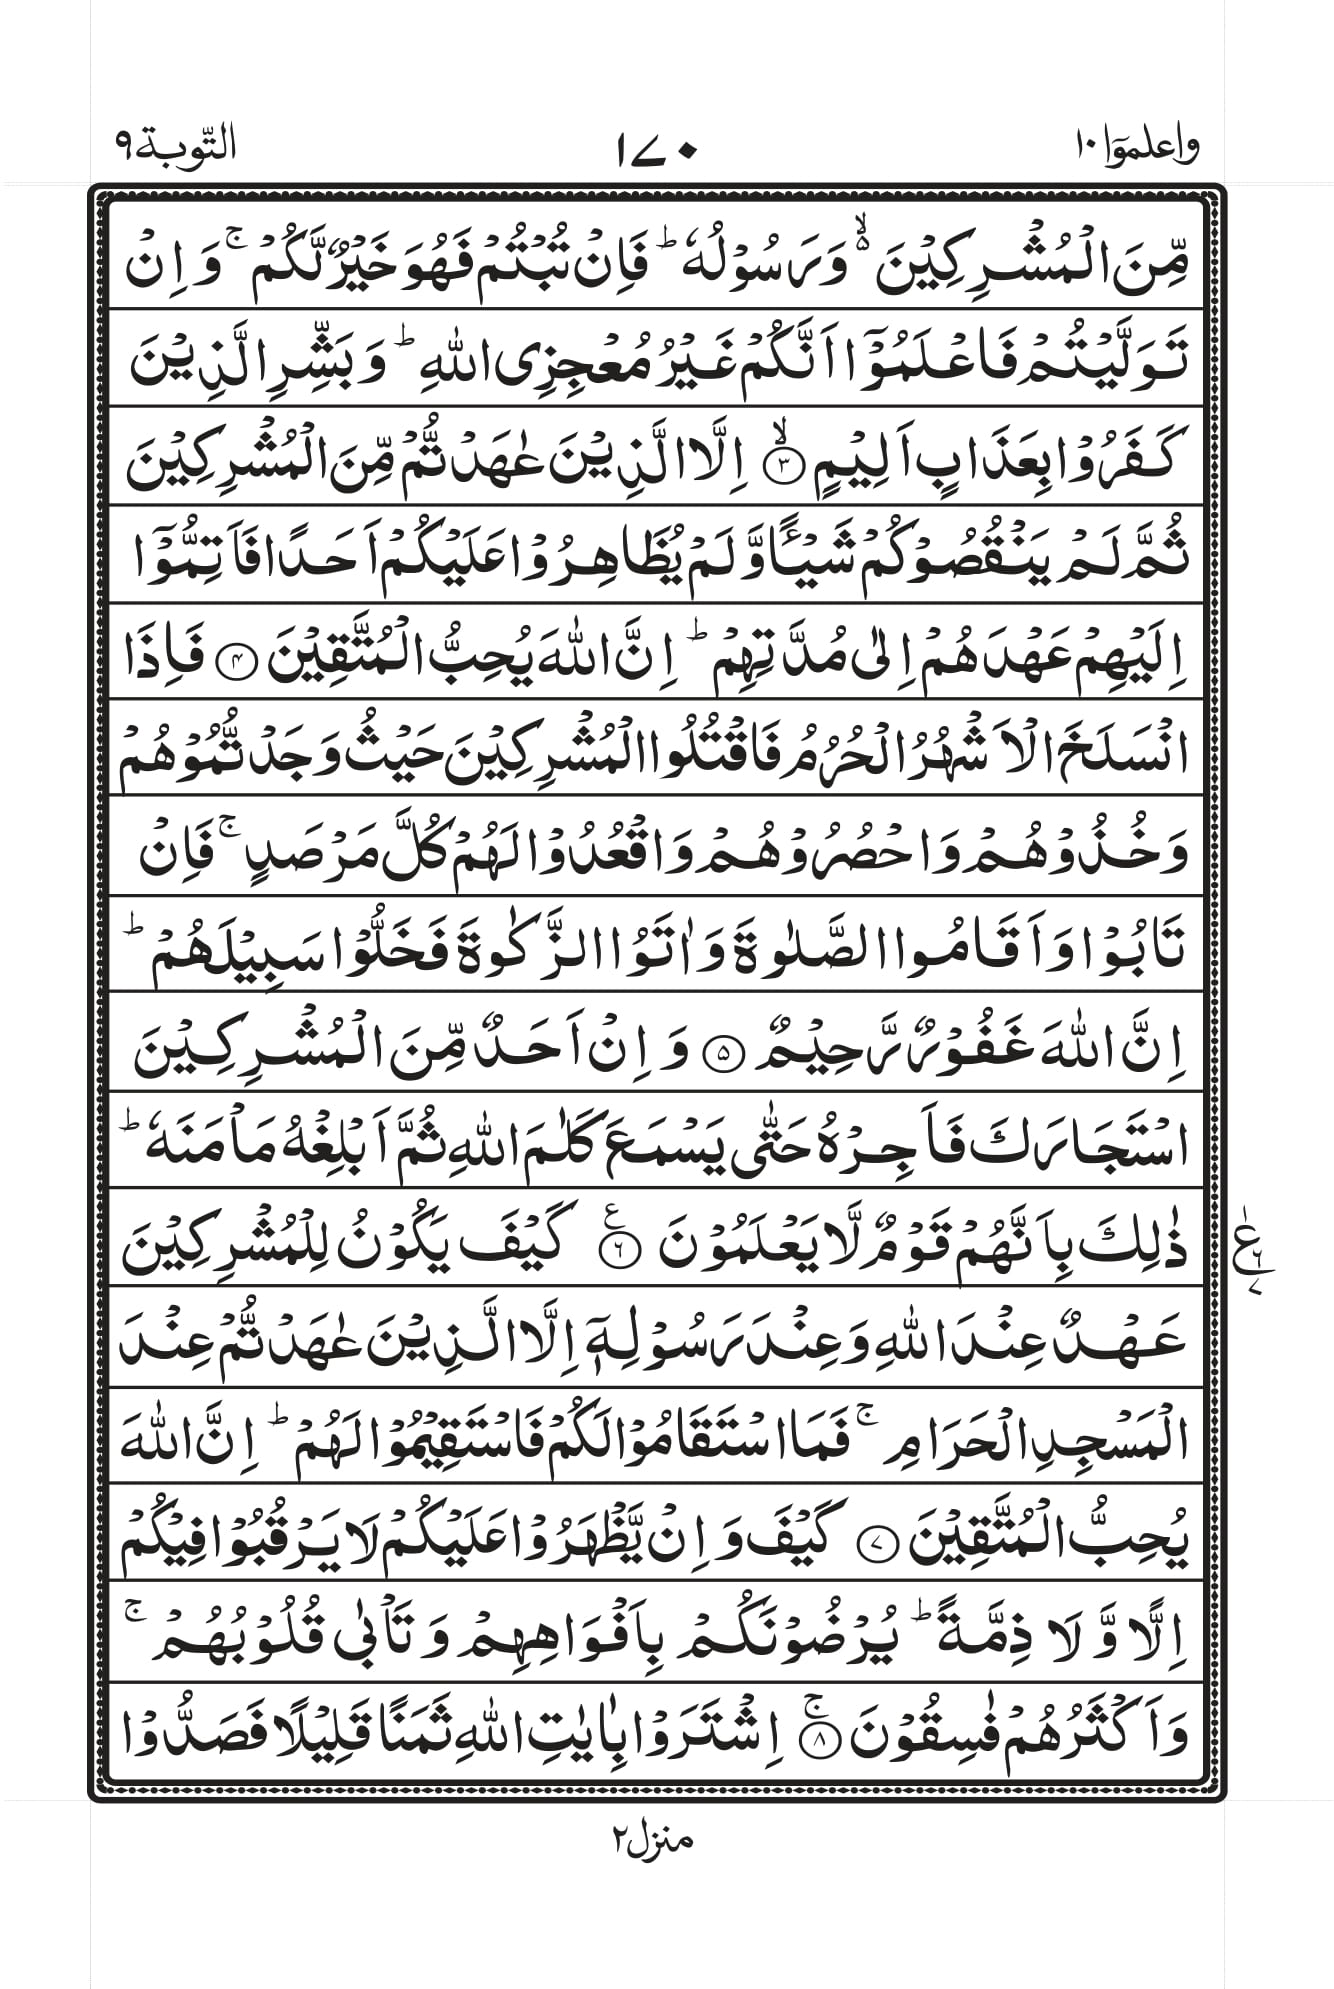 واعلموٓا ١٠
١٧٠
التّوبة ٩
مِّنَ الۡمُشۡرِكِيۡنَ ۙ۬ وَرَسُوۡلُهٗ ؕ فَاِنۡ تُبۡتُمۡ فَهُوَ خَيۡرٌ لَّكُمۡ ۚ وَاِنۡ
تَوَلَّيۡتُمۡ فَاعۡلَمُوۡۤا اَنَّكُمۡ غَيۡرُ مُعۡجِزِى اللّٰهِ ؕ وَبَشِّرِ الَّذِيۡنَ
كَفَرُوۡا بِعَذَابٍ اَلِيۡمٍ ۙ‏﴿۳﴾ اِلَّا الَّذِيۡنَ عٰهَدتُّمۡ مِّنَ الۡمُشۡرِكِيۡنَ
ثُمَّ لَمۡ يَنۡقُصُوۡكُمۡ شَيۡـًٔـا وَّلَمۡ يُظَاهِرُوۡا عَلَيۡكُمۡ اَحَدًا فَاَتِمُّوۡۤا
اِلَيۡهِمۡ عَهۡدَهُمۡ اِلٰى مُدَّتِهِمۡ ؕ اِنَّ اللّٰهَ يُحِبُّ الۡمُتَّقِيۡنَ ﴿۴﴾ فَاِذَا
انْسَلَخَ الۡاَشۡهُرُ الۡحُرُمُ فَاقۡتُلُوا الۡمُشۡرِكِيۡنَ حَيۡثُ وَجَدْتُّمُوۡهُمۡ
وَخُذُوۡهُمۡ وَاحۡصُرُوۡهُمۡ وَاقۡعُدُوۡا لَهُمۡ كُلَّ مَرۡصَدٍ ۚ فَاِنۡ
تَابُوۡا وَاَقَامُوا الصَّلٰوةَ وَاٰتَوُا الزَّكٰوةَ فَخَلُّوۡا سَبِيۡلَهُمۡ ؕ
اِنَّ اللّٰهَ غَفُوۡرٌ رَّحِيۡمٌ ﴿۵﴾ وَاِنۡ اَحَدٌ مِّنَ الۡمُشۡرِكِيۡنَ
اسۡتَجَارَكَ فَاَجِرۡهُ حَتّٰى يَسۡمَعَ كَلٰمَ اللّٰهِ ثُمَّ اَبۡلِغۡهُ مَاۡمَنَهٗ ؕ
ذٰلِكَ بِاَنَّهُمۡ قَوۡمٌ لَّا يَعۡلَمُوۡنَ ﴿۶﴾ ع كَيۡفَ يَكُوۡنُ لِلۡمُشۡرِكِيۡنَ
ع ۶ ۷
عَهۡدٌ عِنۡدَ اللّٰهِ وَعِنۡدَ رَسُوۡلِهٖۤ اِلَّا الَّذِيۡنَ عٰهَدْتُّمۡ عِنۡدَ
الۡمَسۡجِدِ الۡحَرَامِ ۚ فَمَا اسۡتَقَامُوۡا لَكُمۡ فَاسۡتَقِيۡمُوۡا لَهُمۡ ؕ اِنَّ اللّٰهَ
يُحِبُّ الۡمُتَّقِيۡنَ ﴿۷﴾ كَيۡفَ وَاِنۡ يَّظۡهَرُوۡا عَلَيۡكُمۡ لَا يَرۡقُبُوۡا فِيۡكُمۡ
اِلًّا وَّلَا ذِمَّةً ؕ يُرۡضُوۡنَكُمۡ بِاَفۡوَاهِهِمۡ وَتَاۡبٰى قُلُوۡبُهُمۡ ۚ
وَاَكۡثَرُهُمۡ فٰسِقُوۡنَ ۚ‏﴿۸﴾ اِشۡتَرَوۡا بِاٰيٰتِ اللّٰهِ ثَمَنًا قَلِيۡلًا فَصَدُّوۡا
منزل ۲